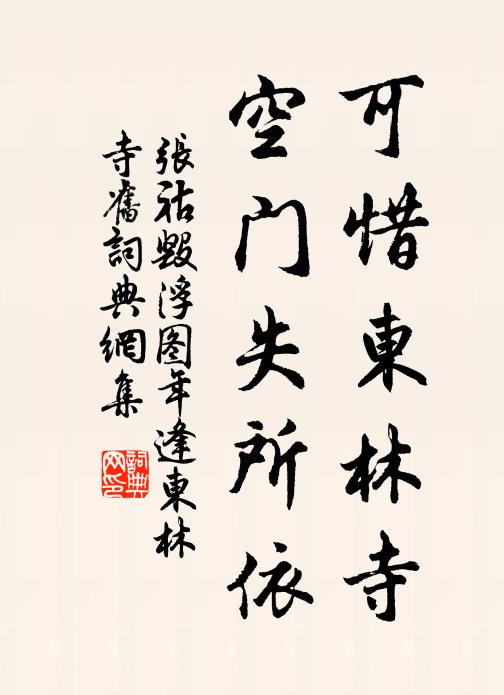 可惜東林寺
空門失所依
張祜毀浮图年逢東林
寺舊詞典網集
詞典
网印